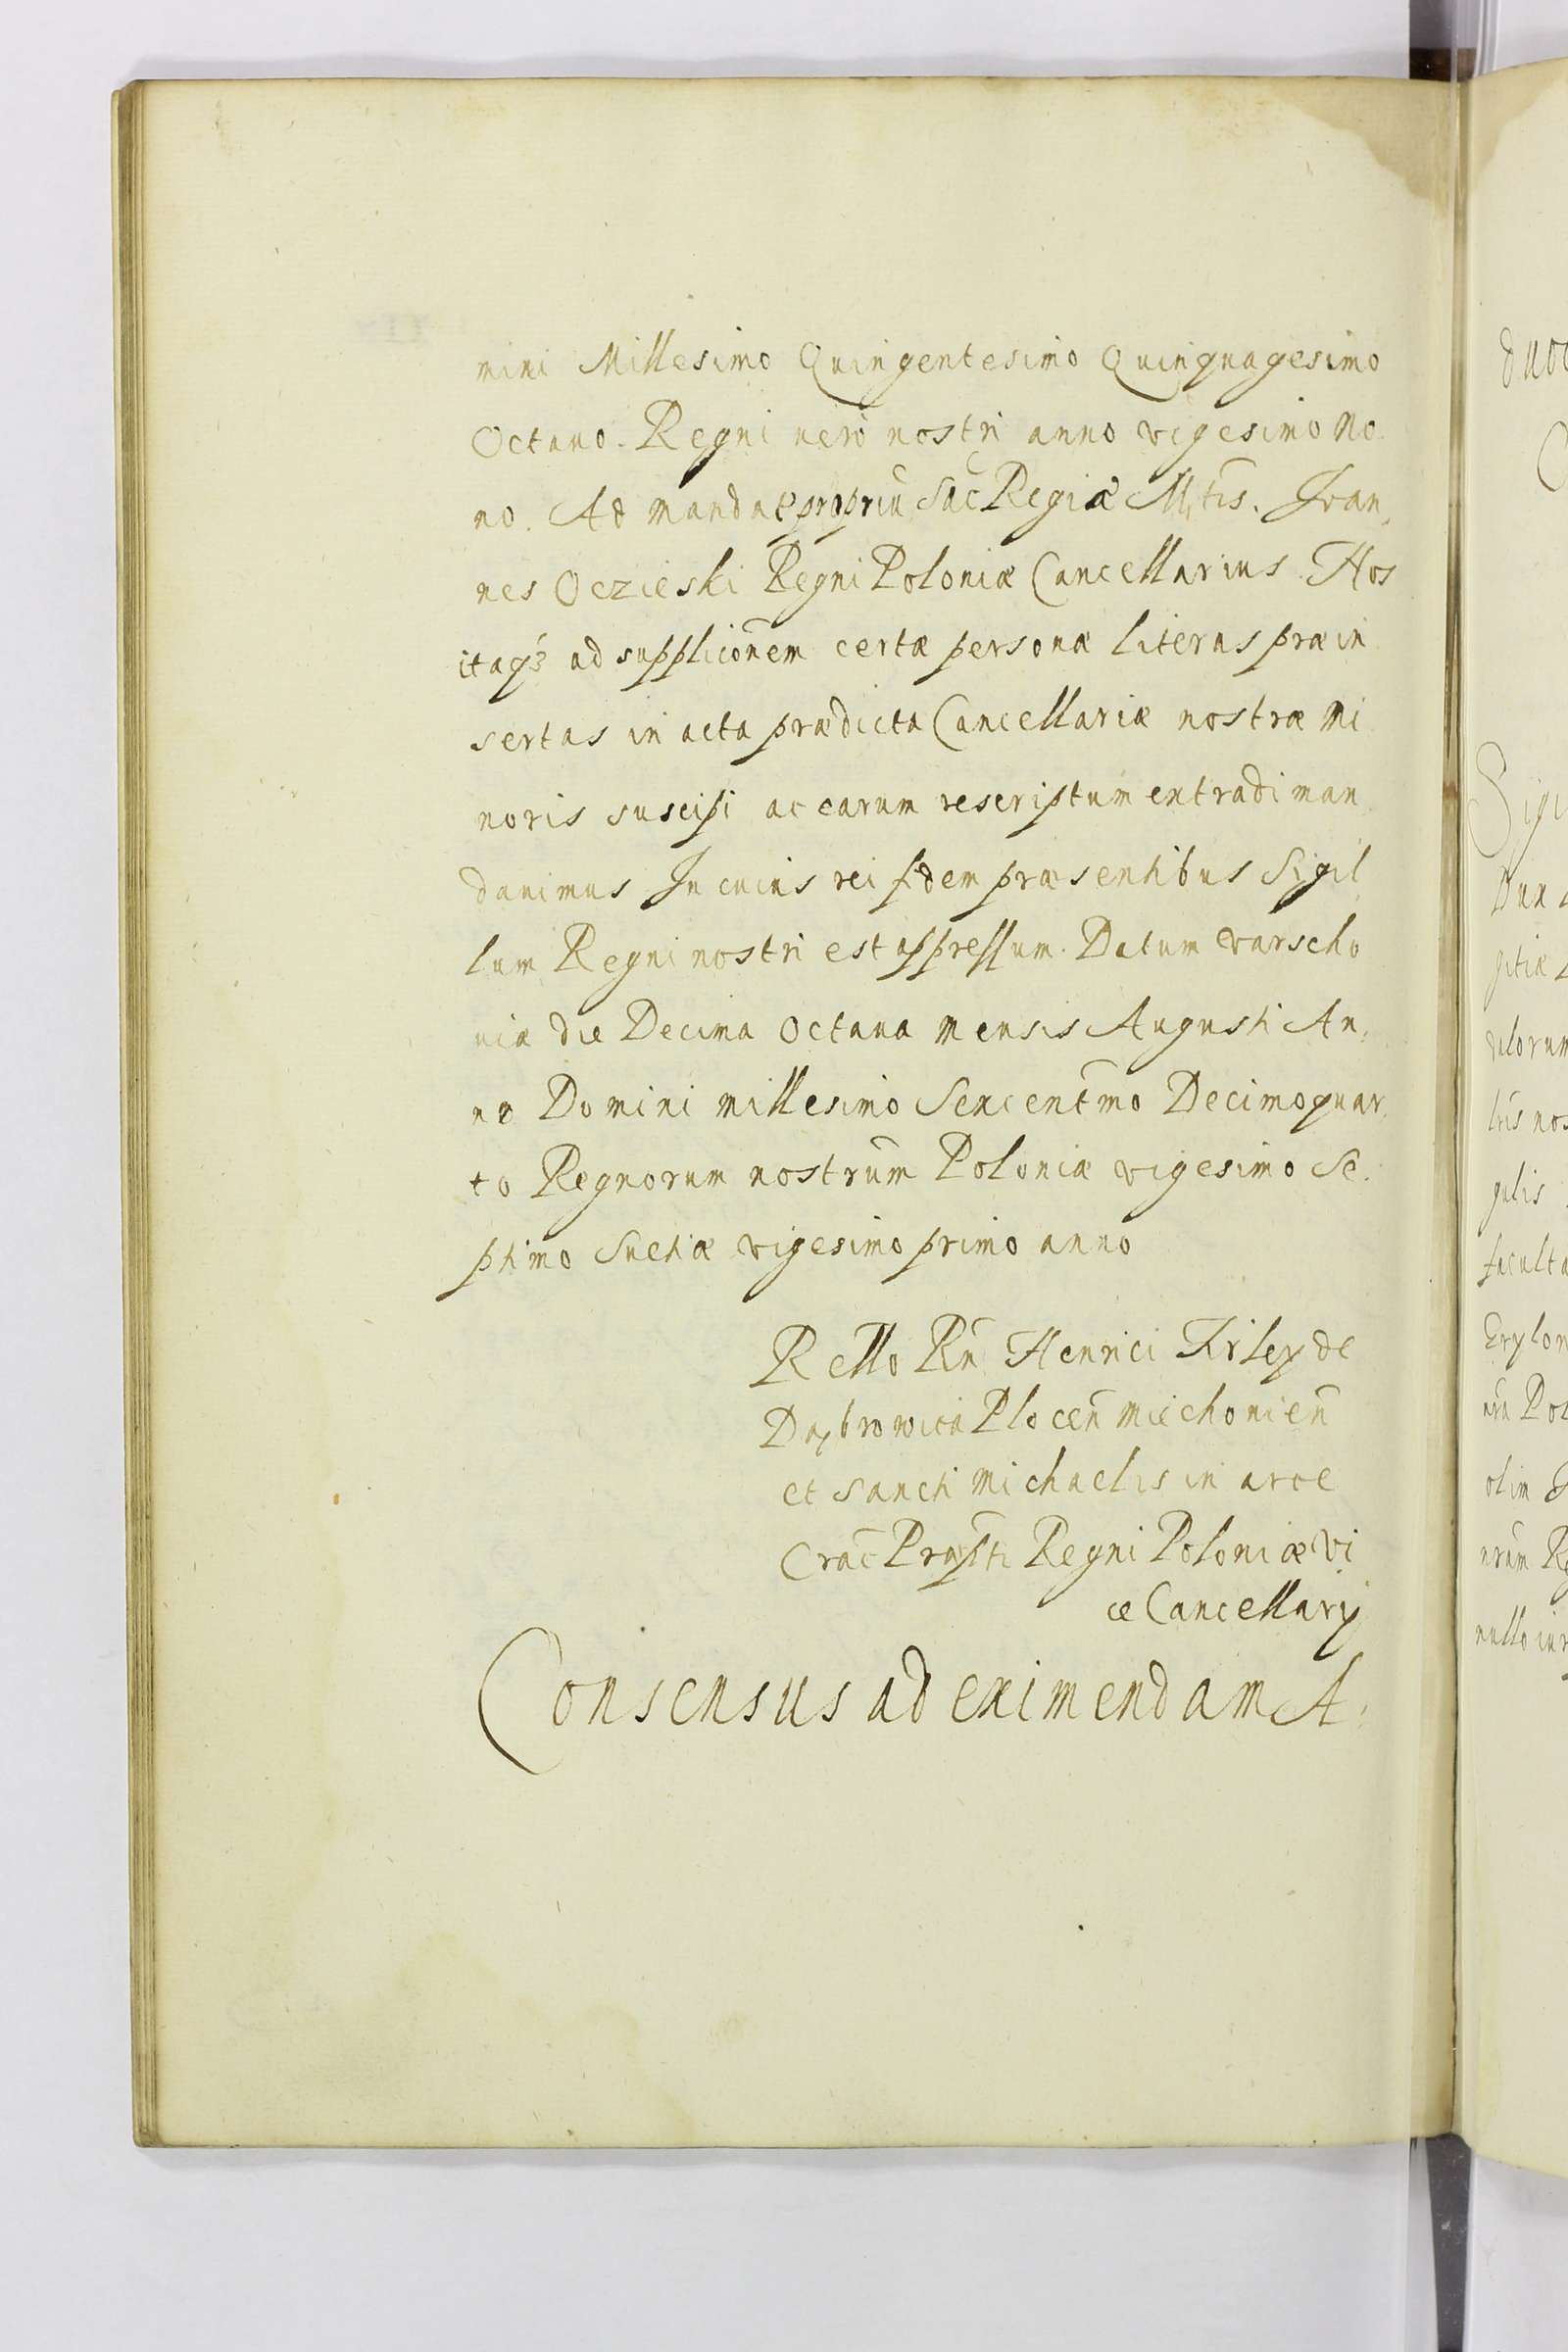 mini Millesimo Quingentesimo Quinquagesimo
Octauo. Regni uero nostri anno vigesimo No
no. Ad mandat propriu Sac Regiæ Mtis. Ioan,
nes Oczieski Regni Poloniæ Cancellarius Hos
itaq3 ad supplicõnem certæ personæ literas præin
sertas in acta prædicta Cancellariæ nostræ Mi
noris suscipi ac earum rescriptum extradi man
dauimus In cuius rei fidem præsentibus Sigil
lum Regni nostri est appressum. Datum Varscho
uiæ die Decima Octaua mensis Augusti An,
no Domini millesimo Sexcentmo Decimoquar,
to Regnorum nostrum Poloniæ vigesimo Se.
ptimo Suetiæ vigesimo primo anno
Rello Rn Henrici Firley de
Dąbrowica Plocen Miechouien
et Sancti Michaelis in arce
Crac Præpti Regni Poloniæ Vi
ce Cancellarij
Consensus ad eximendam A:
duoc
Sigi
Dux
gitiæ
ulorum
lris nos
gulis
faculta
Pol
olim
nrum
nullo iur